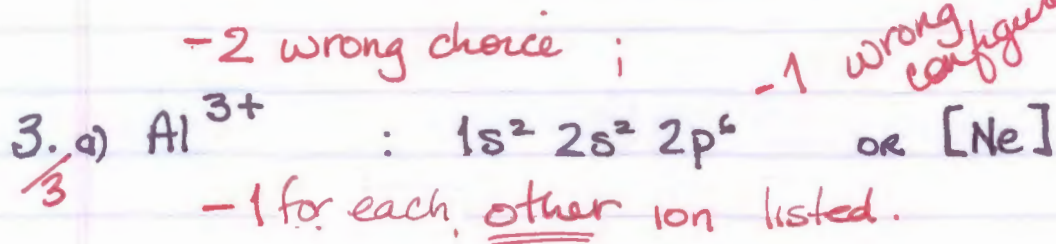 -2 wrong choice ;
-1 wrong
3. a) Al³⁺ : 1s² 2s² 2p⁶ or [Ne]
/3
-1 for each other ion listed.